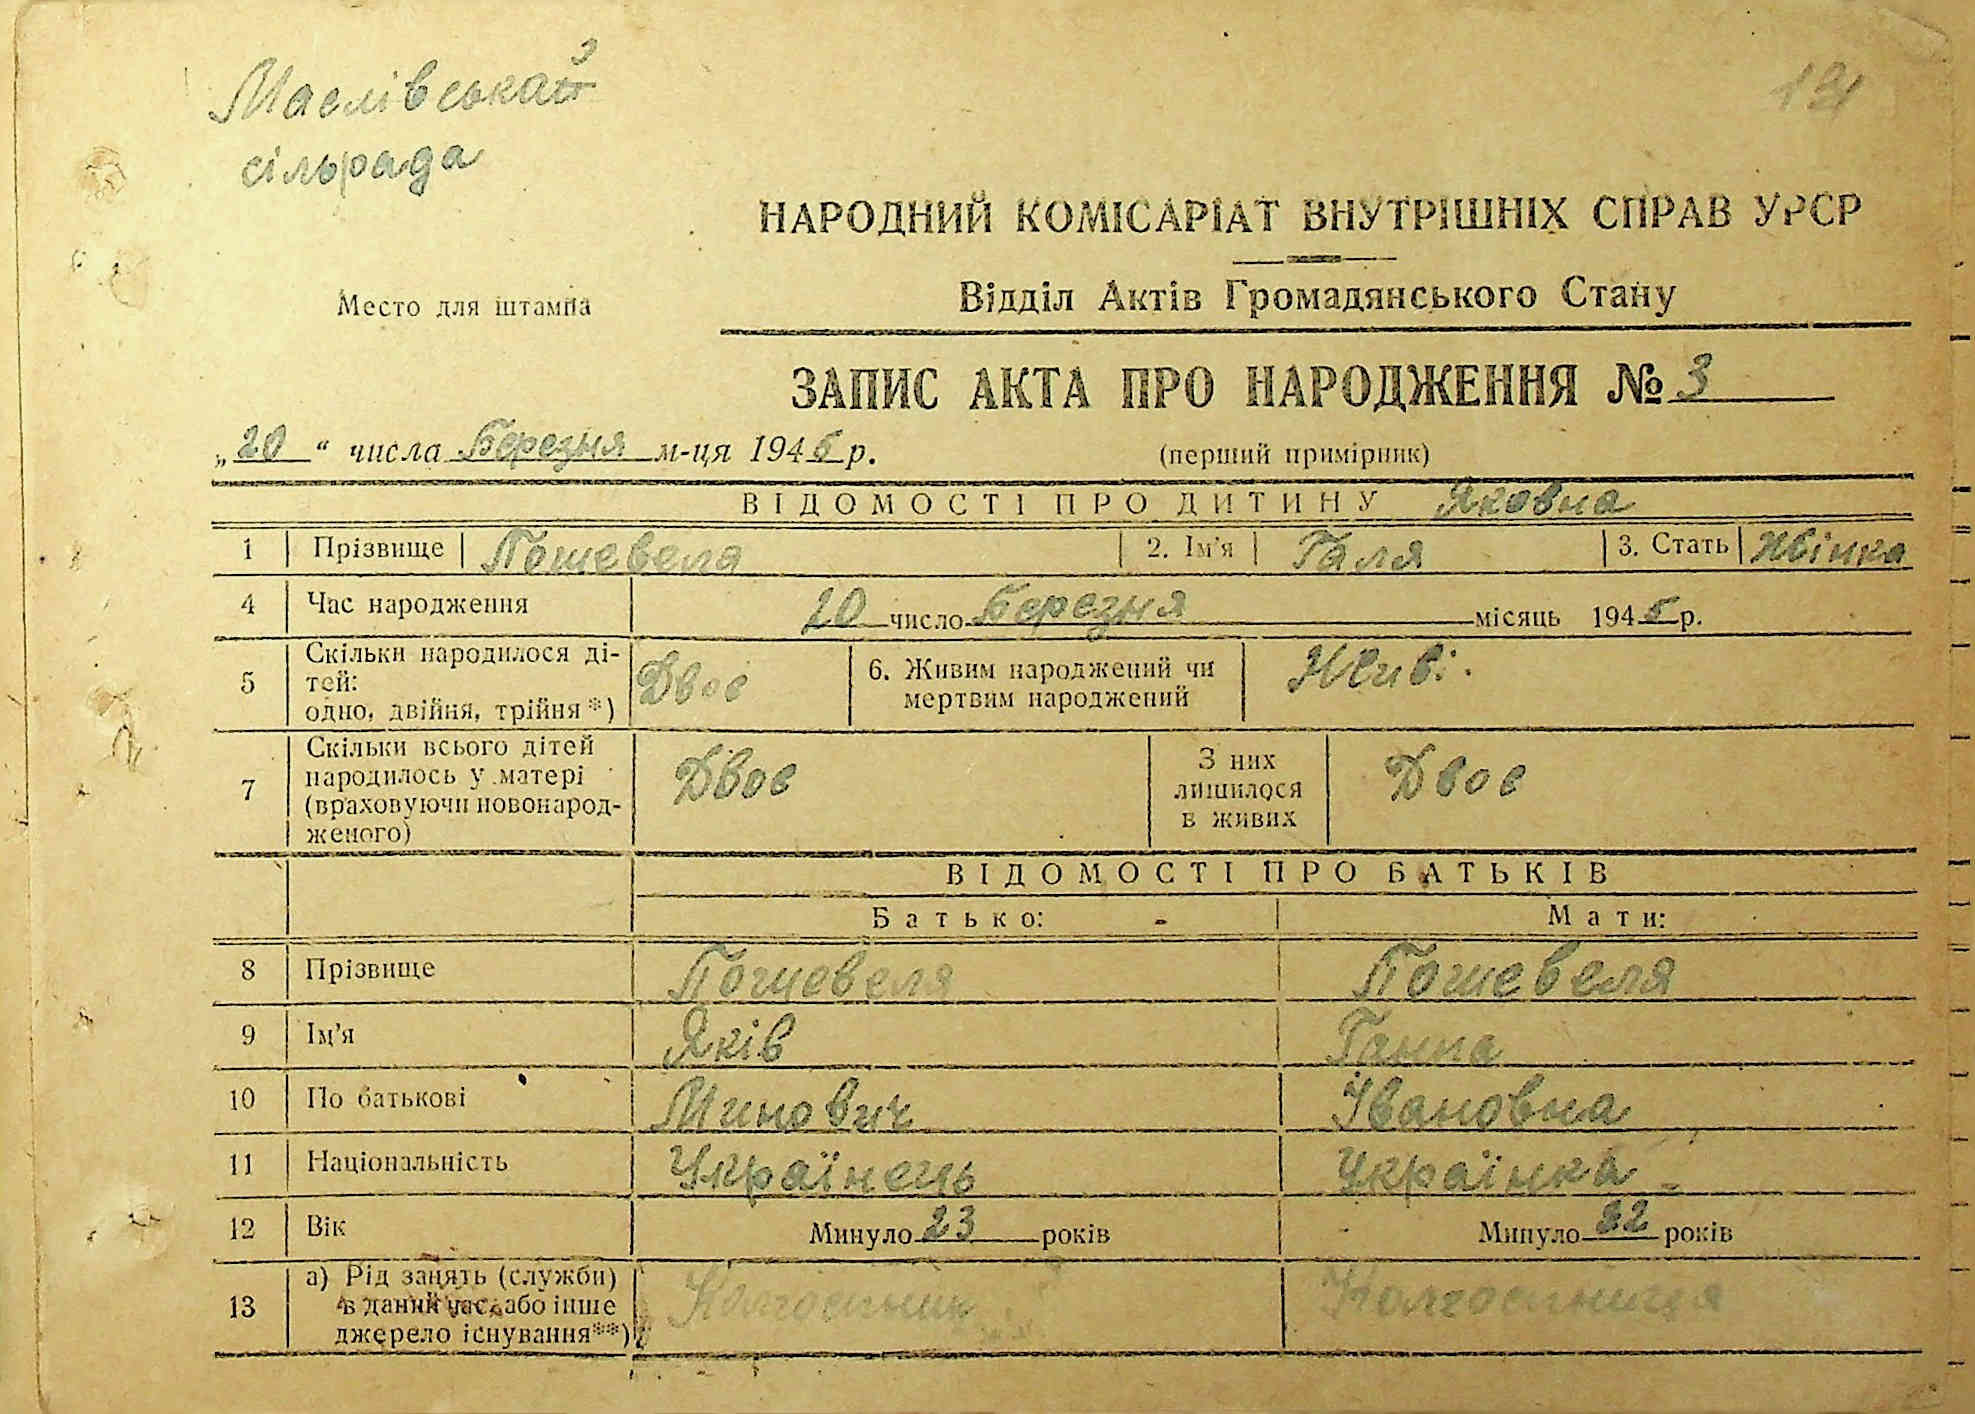 Маслівська
сільрада
НАРОДНИЙ КОМІСАРІАТ ВНУТРІШНІХ СПРАВ УРСР
Место для штампа
Відділ Актів Громадянського Стану
ЗАПИС АКТА ПРО НАРОДЖЕННЯ № 3
„20“ числа Березня м-ця 1945 р. (перший примірник)
ВІДОМОСТІ ПРО ДИТИНУ Яковна
1 Прізвище Пошевеля 2. Ім'я Галя 3. Стать Жінка
4 Час народження 20 число Березня місяць 1945 р.
5 Скільки народилося ді-
тей:
одно, двійня, трійня*) Двоє 6. Живим народжений чи
мертвим народжений Живі.
7 Скільки всього дітей
народилось у матері
(враховуючи новонарод-
женого) Двоє З них
лишилося
в живих Двоє
ВІДОМОСТІ ПРО БАТЬКІВ
Батько: Мати:
8 Прізвище Пошевеля Пошевеля
9 Ім'я Яків Ганна
10 По батькові Минович Івановна
11 Національність Українець Українка
12 Вік Минуло 23 років Минуло 22 років
13 а) Рід занять (служби)
в даний час або інше
джерело існування**) Колгоспник Колгоспниця